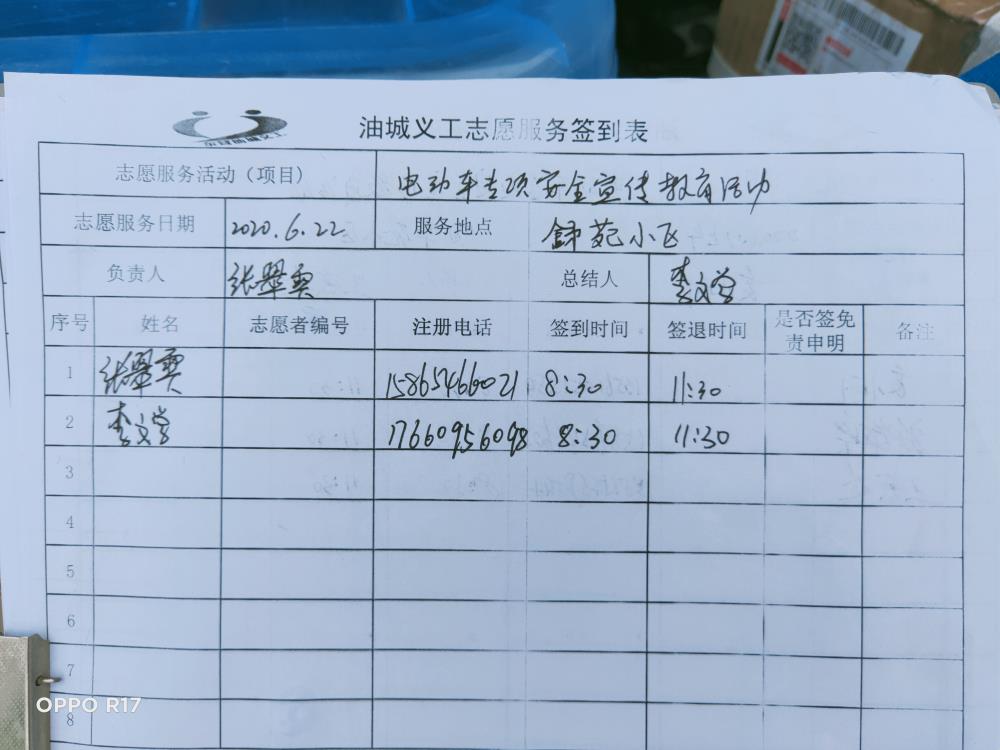 油城义工志愿服务签到表
志愿服务活动（项目） 电动车专项安全宣传教育活动
志愿服务日期 2020.6.22 服务地点 锦苑小区
负责人 张翠霞 总结人 李文学
序号 姓名 志愿者编号 注册电话 签到时间 签退时间 是否签免责申明 备注
1 张翠霞 15865466021 8:30 11:30
2 李文学 17660956098 8:30 11:30
3
4
5
6
7
8
OPPO R17